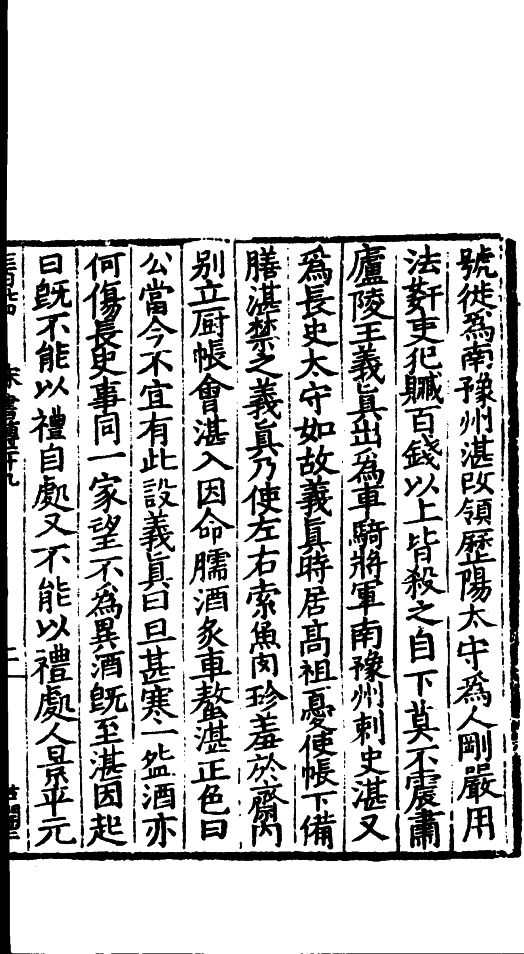 號徙爲南豫州湛改領歷陽太守爲人剛嚴用
法姧吏犯贓百錢以上皆殺之自下莫不震肅
廬陵王義眞出爲車騎將軍南豫州刺史湛又
爲長史太守如故義眞時居髙祖憂使帳下備
膳湛禁之義眞乃使左右索魚肉珍羞於齋內
別立厨帳會湛入因命臑酒炙車螯湛正色曰
公當今不宜有此設義眞曰旦甚寒一盌酒亦
何傷長史事同一家望不為異酒旣至湛因起
曰旣不能以禮自處又不能以禮處人景平元
宋書傳二十九
二